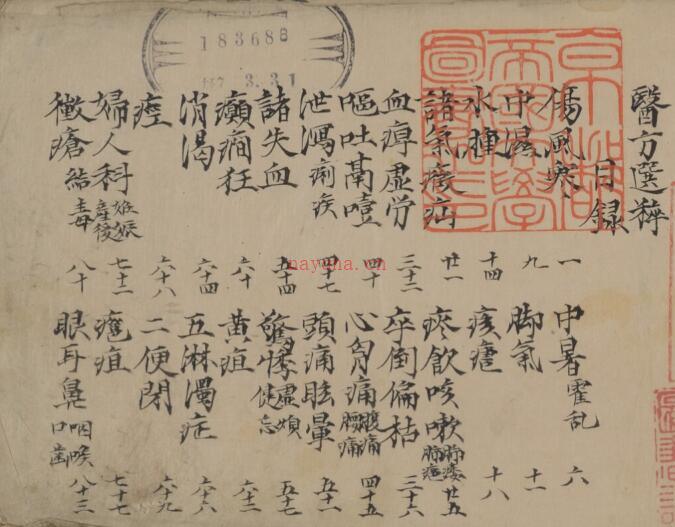 醫方選粹
目録
傷風寒 一
中暑霍乱 六
中濕 九
脚氣 十一
水腫 十四
痎瘧 十八
諸氣 疝 廿一
痰飲咳嗽 肺痿 肺癰 廿五
血 虚労 三十二
卒倒偏枯 三十六
嘔吐鬲噎 四十
心胷痛 腹痛 腰痛 四十五
泄瀉 痢疾 四十七
頭痛眩暈 五十一
諸失血 五十四
驚悸 虚煩 健忘 五十七
癲癇狂 六十
黄疸 六十二
消渇 六十四
五淋濁症 六十六
痙 六十八
二便閉 六十九
婦人科 妊娠 産後 七十二
疽 七十七
黴瘡 結毒 八十
眼耳鼻 咽喉 口歯 八十三
183688
3.31
nayona.cn